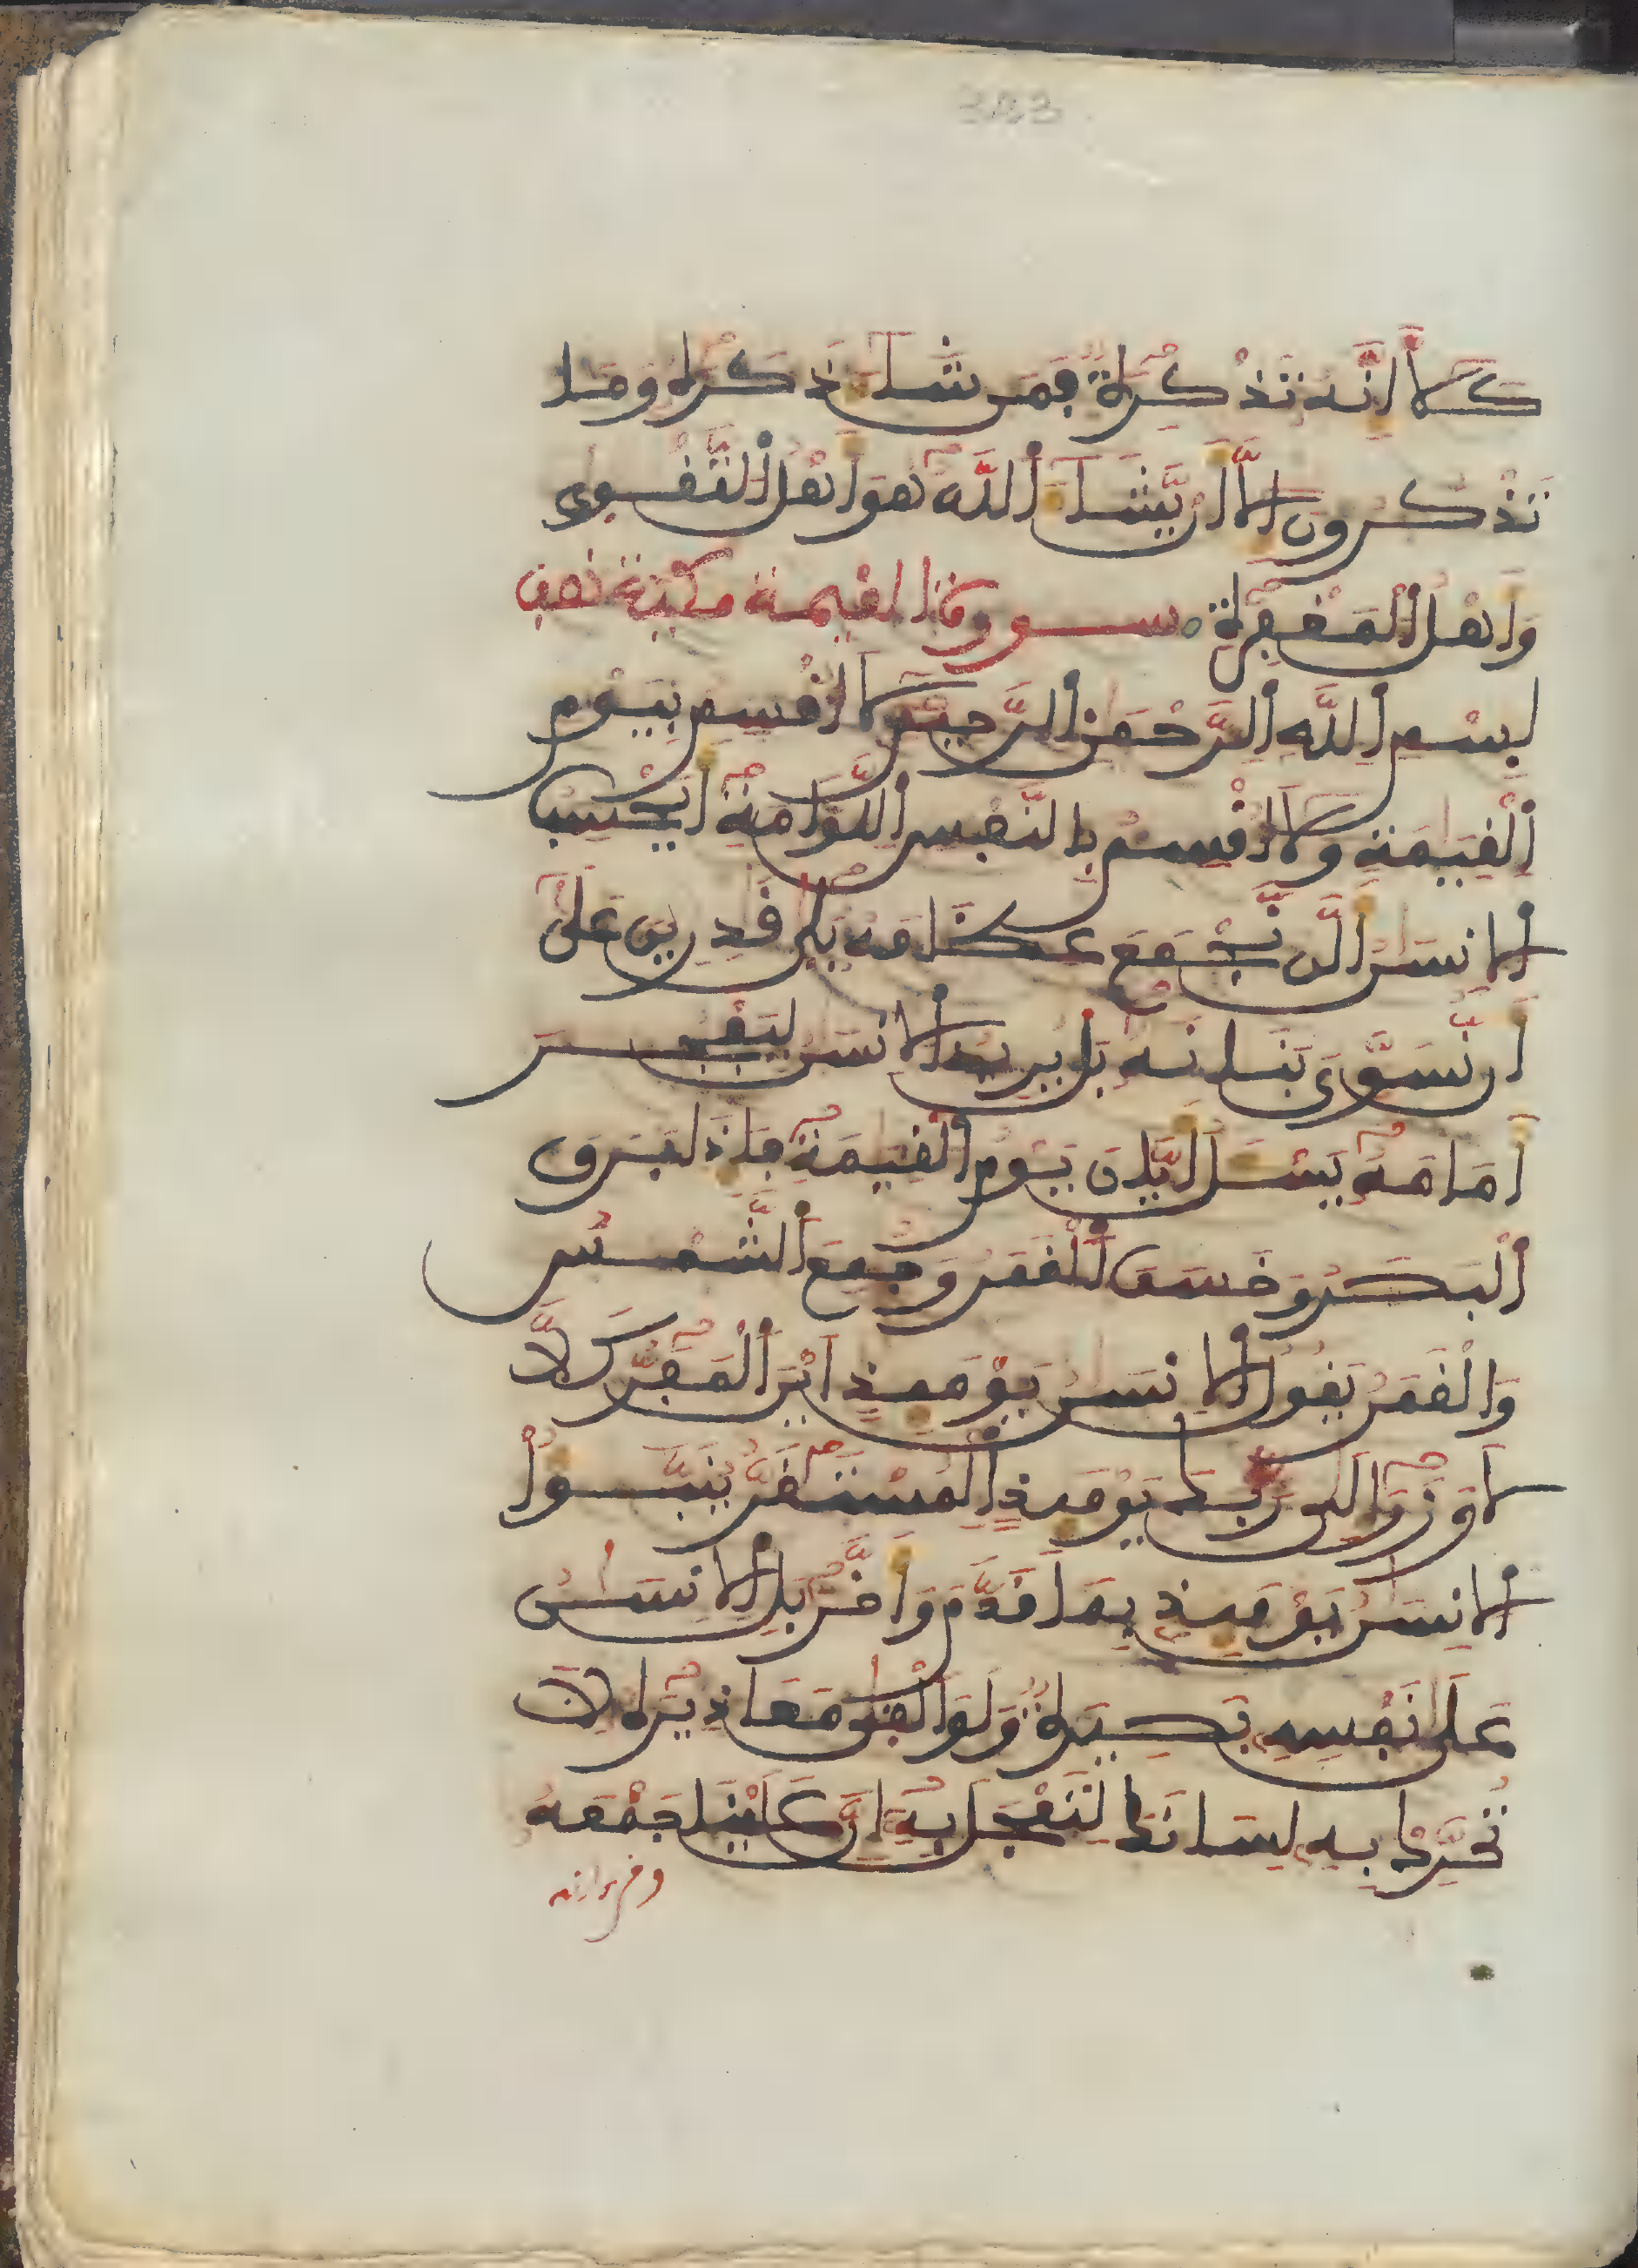 كَلَّا إِنَّهُ تَذْكِرَةٌ فَمَن شَآءَ ذَكَرَهُ وَمَا
تَذْكُرُونَ إِلَّا أَنْ يَّشَآءَ اَللَّهُ هُوَ أَهْلُ اُلتَّقْوِى
وَأَهْلُ اُلْمَغْفِرَةِ سورة القيمة مكية
بِسْمِ اِللَّهِ اِلرَّحْمَنِ اِلرَّحِيمِ لَا أُقْسِمُ بِيَوْمِ
اِلْقِيَمَةِ وَلَا أُقْسِمُ بِالنَّفْسِ اِللَّوَّامَةِ أَيَحْسِبُ
اُلْإِنسَنُ أَلَّن نَّجْمَعَ عِظَامَهُ بَلِى قَدِرِينَ عَلَى
أَن نُّسَوِّيَ بَنَانَهُ بَلْ يُرِيدُ اُلْإِنسَنُ لِيَفْجُرَ
أَمَامَهُ يَسْـَٔلُ أَيَّانَ يَوْمُ اُلْقِيَمَةِ فَإِذَا بَرَقَ
اَلْبَصَرُ وَخَسَفَ اَلْقَمَرُ وَجُمِعَ اَلشَّمْسُ
وَالْقَمَرُ يَقُولُ اُلْإِنسَنُ يَوْمَئِذٍ أَيْنَ اَلْمَفَرُّ كَلَّا
لَا وَزَرَ إِلَى رَبِّكَ يَوْمَئِذٍ اِلْمُسْتَقَرُّ يُنَبَّؤُا
اُلْإِنسَنُ يَوْمَئِذٍ بِمَا قَدَّمَ وَأَخَّرَ بَلِ اِلْإِنسَنُ
عَلَى نَفْسِهِ بَصِيرَةٌ وَلَوْ أَلْقِى مَعَاذِيرَهُ لَا
تُحَرِّكْ بِهِ لِسَانَكَ لِتَعْجَلَ بِهِ إِنَّ عَلَيْنَا جَمْعَهُ
وقرءانه